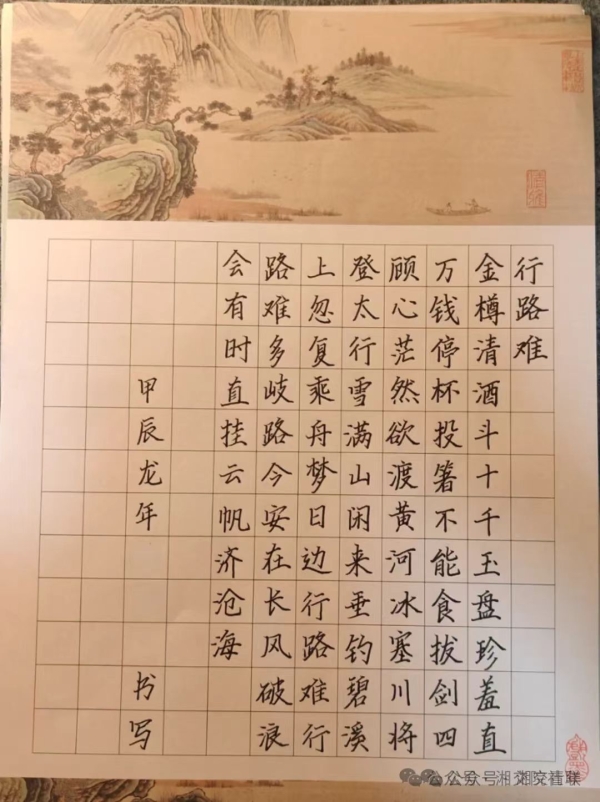 行路难
金樽清酒斗十千玉盘珍羞直
万钱停杯投箸不能食拔剑四
顾心茫然欲渡黄河冰塞川将
登太行雪满山闲来垂钓碧溪
上忽复乘舟梦日边行路难行
路难多歧路今安在长风破浪
会有时直挂云帆济沧海
甲辰龙年 书写
公众号·湘交院社联